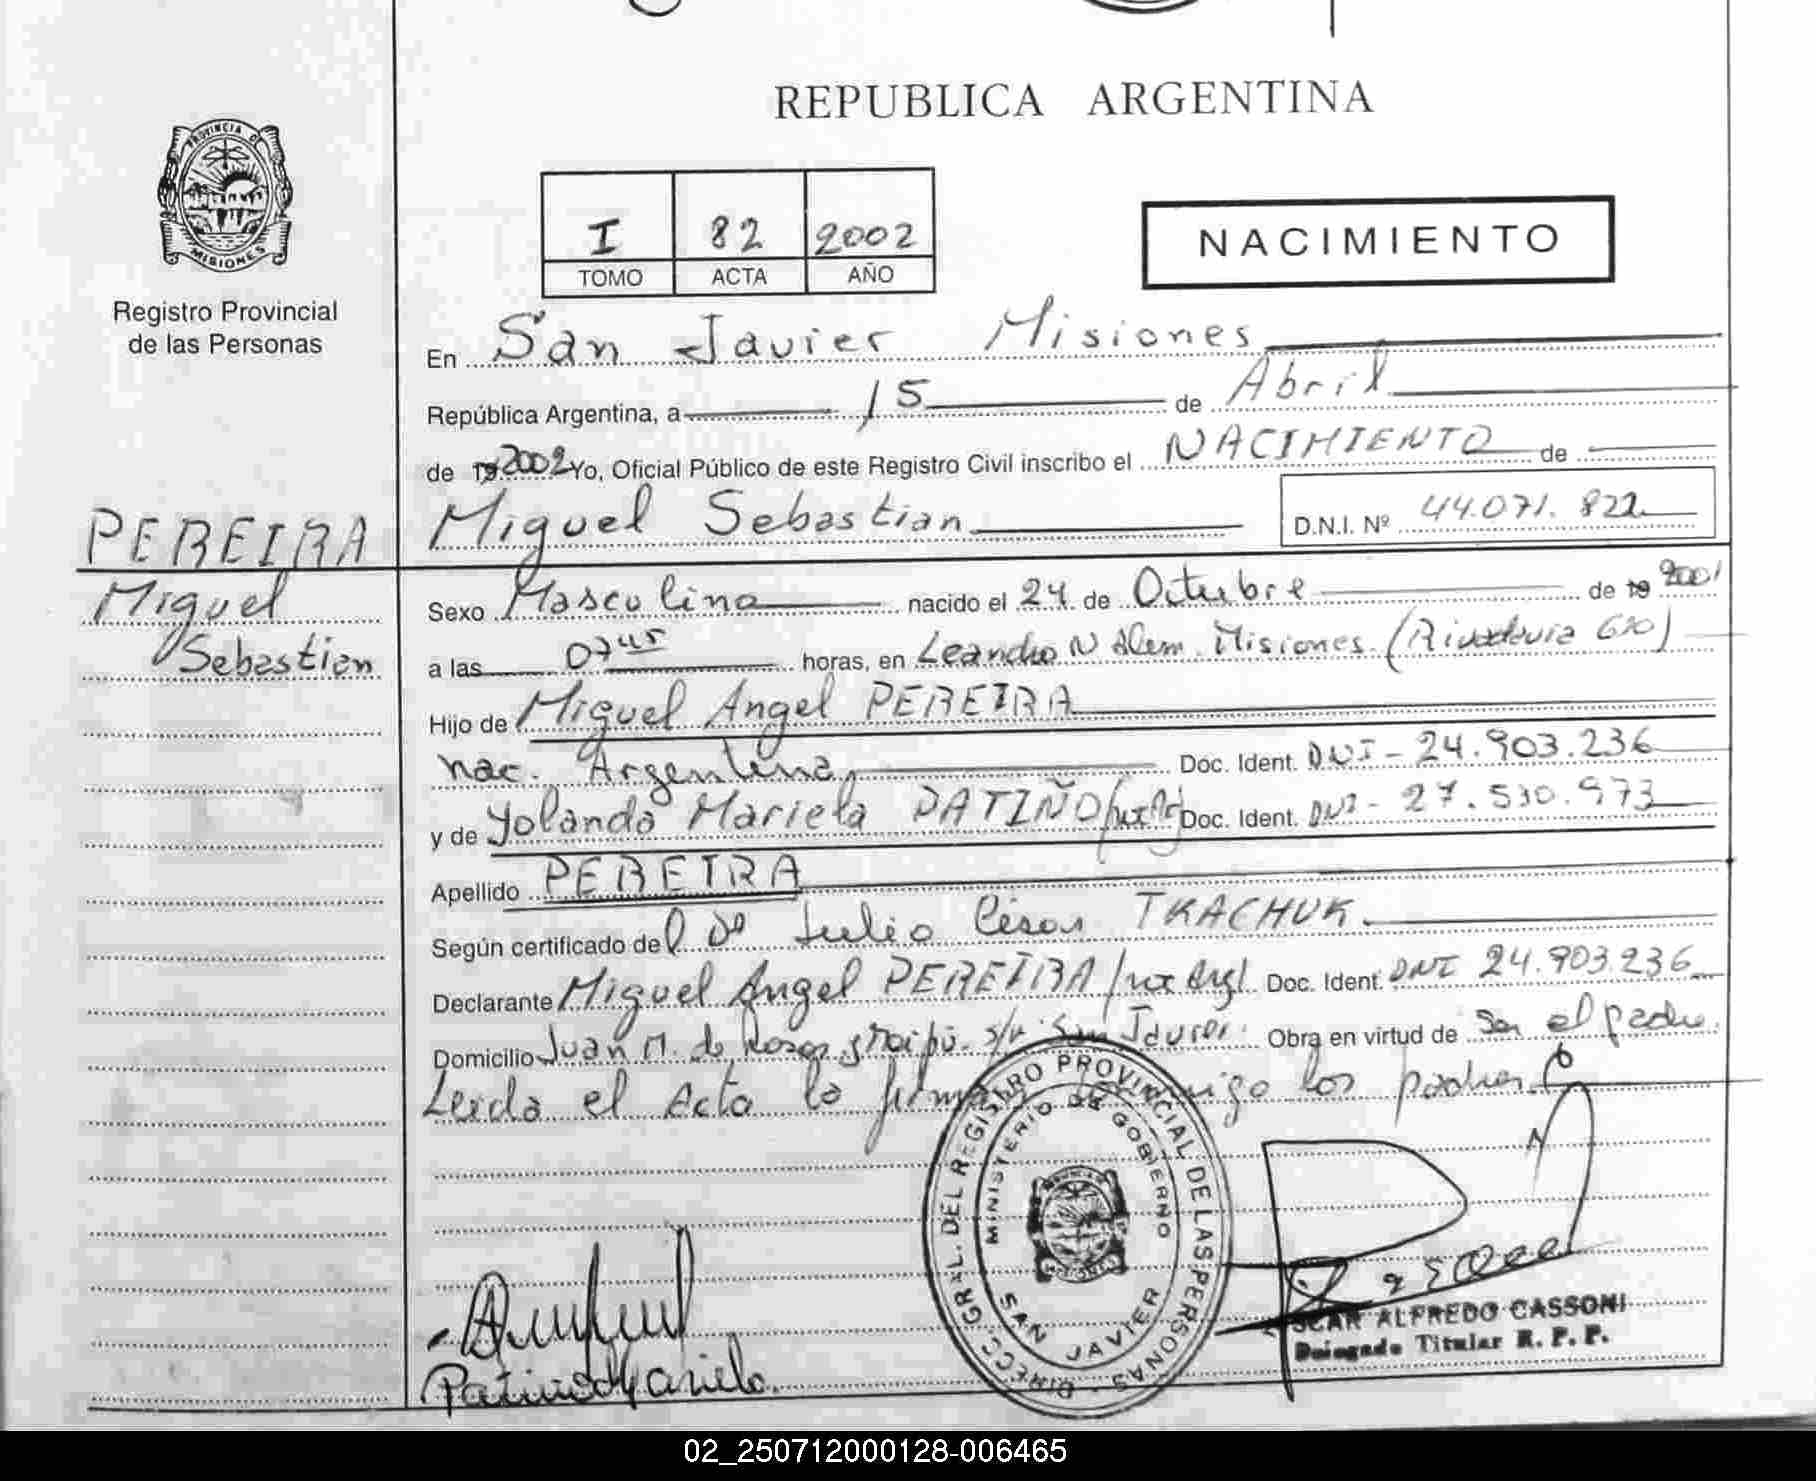 REPUBLICA ARGENTINA
PROVINCIA DE
MISIONES
Registro Provincial
de las Personas
I 82 2002
TOMO ACTA AÑO
NACIMIENTO
En San Javier Misiones
República Argentina, a 15 de Abril
de 19 2002 Yo, Oficial Público de este Registro Civil inscribo el NACIMIENTO de
Miguel Sebastian D.N.I. Nº 44.071.822
PEREIRA
Miguel
Sebastian
Sexo Masculino nacido el 24 de Octubre de 19 2001
a las 07 45 horas, en Leandro N Alem Misiones (Rivadavia 620)
Hijo de Miguel Angel PEREIRA
nac. Argentina, Doc. Ident. DNI - 24.903.236
y de Yolanda Mariela PATIÑO Doc. Ident. DNI - 27.530.973
Apellido PEREIRA
Según certificado del Dr Julio César TKACHUK.
Declarante Miguel Angel PEREIRA Doc. Ident. DNI 24.903.236
Domicilio Juan M. de Rosas y Maipú. s/n San Javier. Obra en virtud de ser el padre.
Leida el Acta la firman conmigo los padres
DIRECC. GRAL. DEL REGISTRO PROVINCIAL DE LAS PERSONAS
MINISTERIO DE GOBIERNO
MISIONES
SAN JAVIER
OSCAR ALFREDO CASSONI
Delegado Titular R. P. P.
Patiño Mariela.
02_250712000128-006465